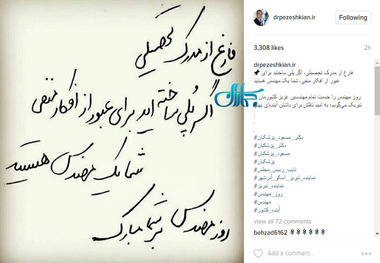 فارغ از مدرک تحصیلی
اگر پُلی ساخته اید برای عبور از افکار منفی
شما یک مهندس هستید
روز مهندس بر شما مبارک
جماران
drpezeshkian.ir
Following
3,308 likes
2h
drpezeshkian.ir
فارغ از مدرک تحصیلی، اگر پلی ساختید برای
عبور از افکار منفی، شما یک مهندس هستید
روز مهندس را خدمت تمام مهندسین عزیز کشورمان
تبریک می‌گویم؛ به امید تلاش برای داشتن آینده‌ای بهتر
.
.
#دکتر_مسعود_پزشکیان
#مسعود_پزشکیان
#پزشکیان
#نایب_رییس_مجلس
#نماینده_تبریز_اسکو_آذرشهر
#نماینده_تبریز
#روز_مهندس
#مهندس
#آینده_کشور
view all 72 comments
behzad6162